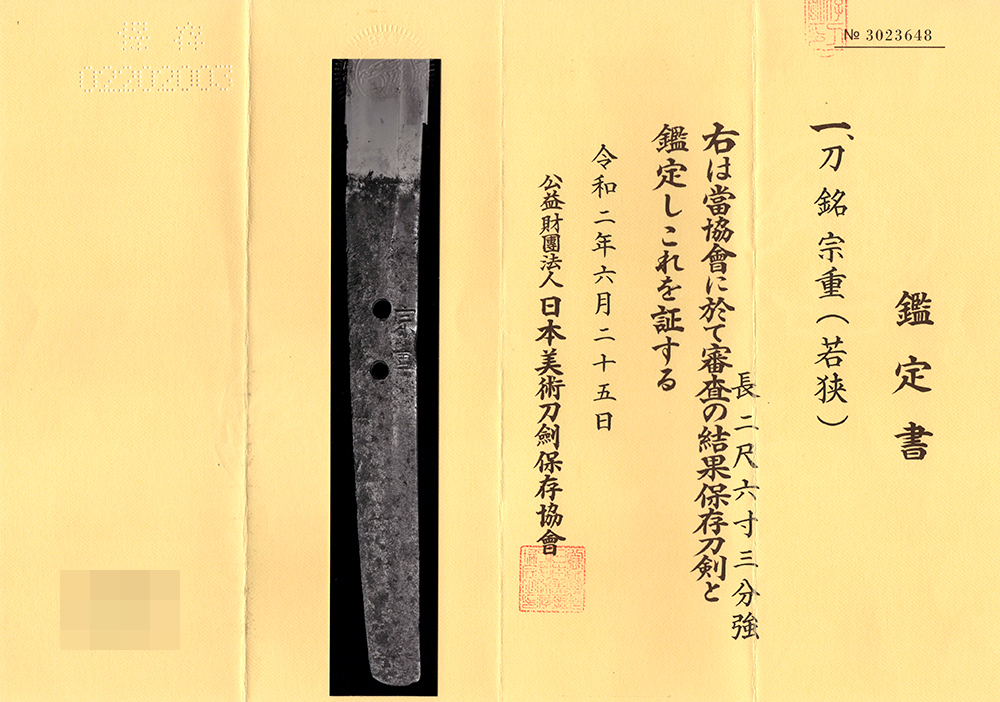 № 3023648
鑑定書
一、刀 銘 宗重(若狭)
長 二尺六寸三分強
右は當協會に於て審査の結果保存刀剣と
鑑定しこれを証する
令和二年六月二十五日
公益財團法人 日本美術刀劍保存協會
宗重
保存
02202003